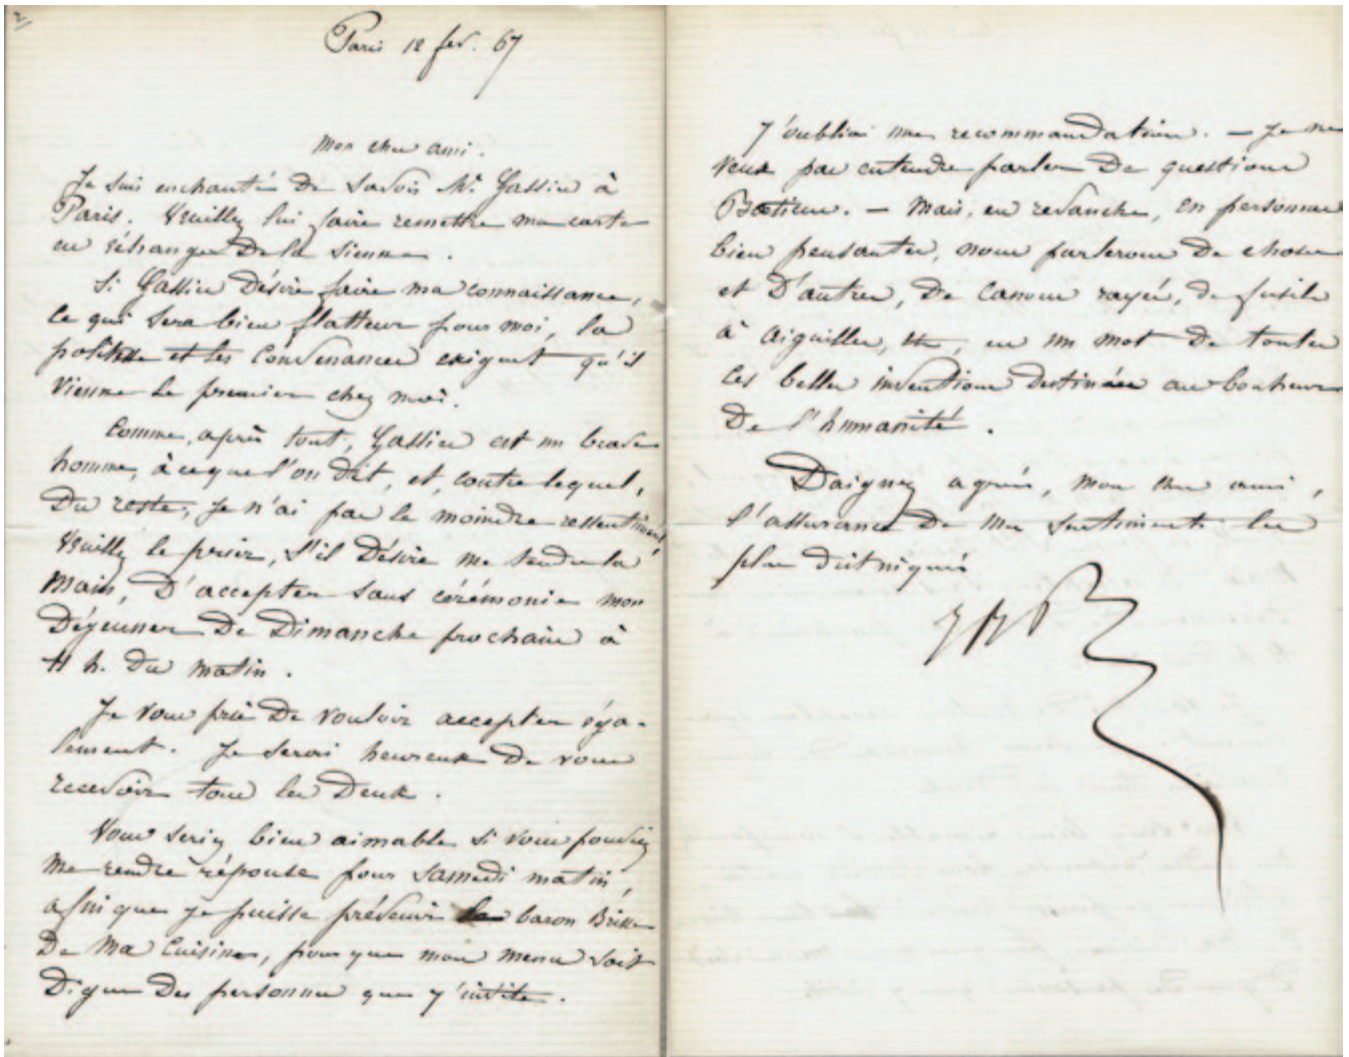 2
Paris 12 fev. 67
Mon cher ami.
Je suis enchanté de savoir Mr Gassier à
Paris. Veuillez lui faire remettre ma carte
en échange de la sienne.
Si Gassier désire faire ma connaissance,
ce qui sera bien flatteur pour moi, la
politesse et les convenances exigent qu'il
vienne le premier chez moi.
Comme, après tout, Gassier est un brave
homme, à ce que l'on dit, et, contre lequel,
du reste, je n'ai pas le moindre ressentiment,
veuillez le prier, s'il désire me tendre la
main, d'accepter sans cérémonie mon
déjeuner de Dimanche prochain à
11 h. du matin.
Je vous prie de vouloir accepter éga-
lement. Je serai heureux de vous
recevoir tous les deux.
Vous seriez bien aimable si vous pouviez
me rendre réponse pour samedi matin,
afin que je puisse prévenir le baron Brisse
de ma cuisine, pour que mon menu soit
digne des personnes que j'invite.
J'oubliai une recommandation. — Je ne
veux pas entendre parler de questions
— Mais, en revanche, en personnes
bien pensantes, nous parlerons de choses
et d'autres, de canons rayés, de fusils
à aiguilles, etc, en un mot de toutes
ces belles inventions destinées au bonheur
de l'humanité.
Daignez agréer, mon cher ami,
l'assurance de mes sentiments les
plus distingués